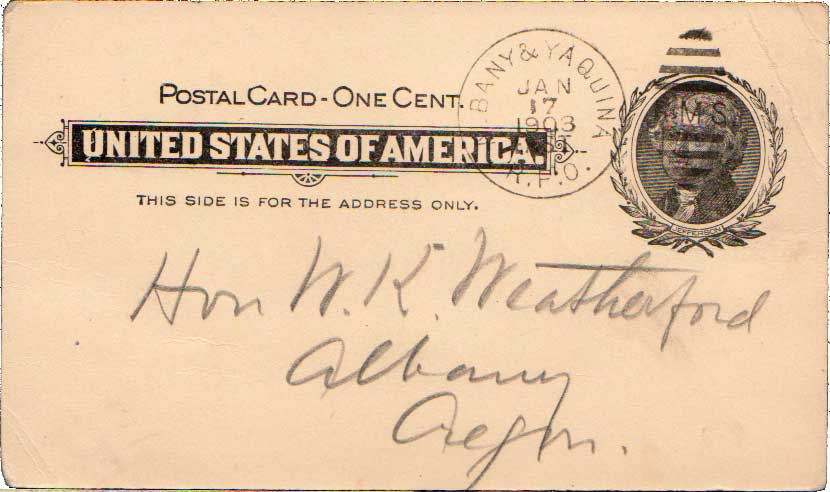 POSTAL CARD - ONE CENT.
UNITED STATES OF AMERICA.
THIS SIDE IS FOR THE ADDRESS ONLY.
BANY & YAQUINA
JAN
17
1903
R.P.O.
M.S.
JEFFERSON
Hon W. K. Weatherford
Albany
Oregon.